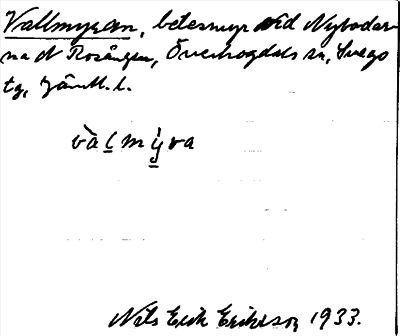 Vallmyran, betesmyr vid Nybodar-
na N Rosången, Överhogdals sn, Svegs
tg, Jämtl. l.
vàlmy̍ra
Nils Erik Eriksson 1933.